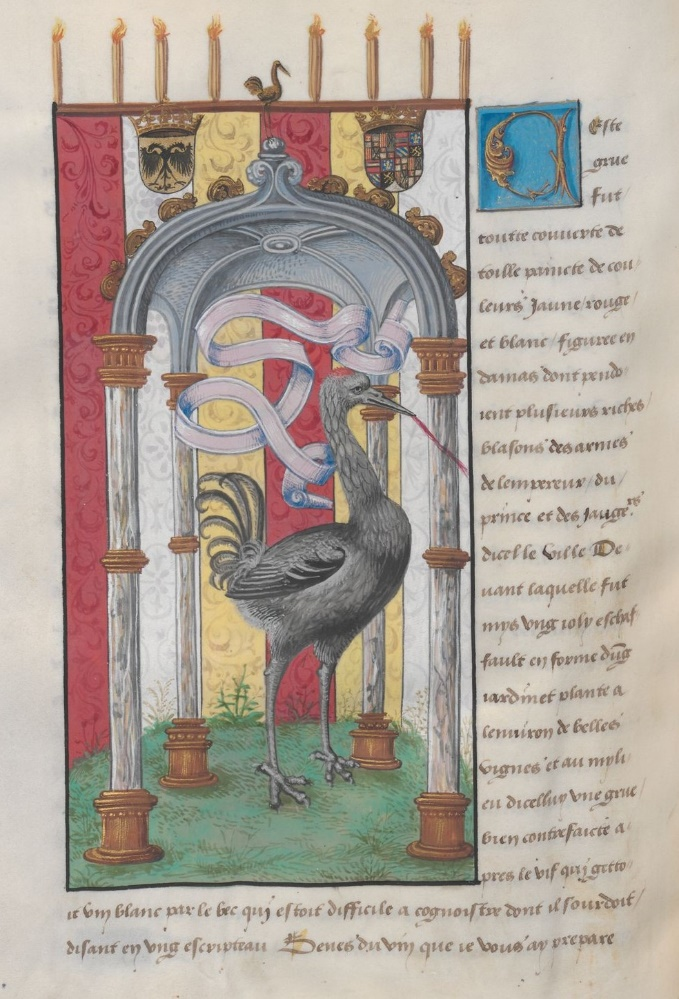 Ceste
grue
fut
toutte couverte de
toille paincte de cou/
leurs Jaune/rouge/
et blanc/figuree en
damas dont pendo/
ient plusieurs riches/
blasons des armes
de lempereur/du/
prince et des Jauge.rs
dicelle ville De/
vant laquelle fut
mys ung joly eschaf/
fault en forme dūg
iardinet plante a
lenuiron de belles
vignes et au myli/
eu dicelluy une grue/
bien contrefaicte a/
pres le vif qui getto/
it vin blanc par le bec quj estoit difficile a cognoistre dont il sourdoit/
disant en ung escripteau Venes du vin que ie vous ay prepare